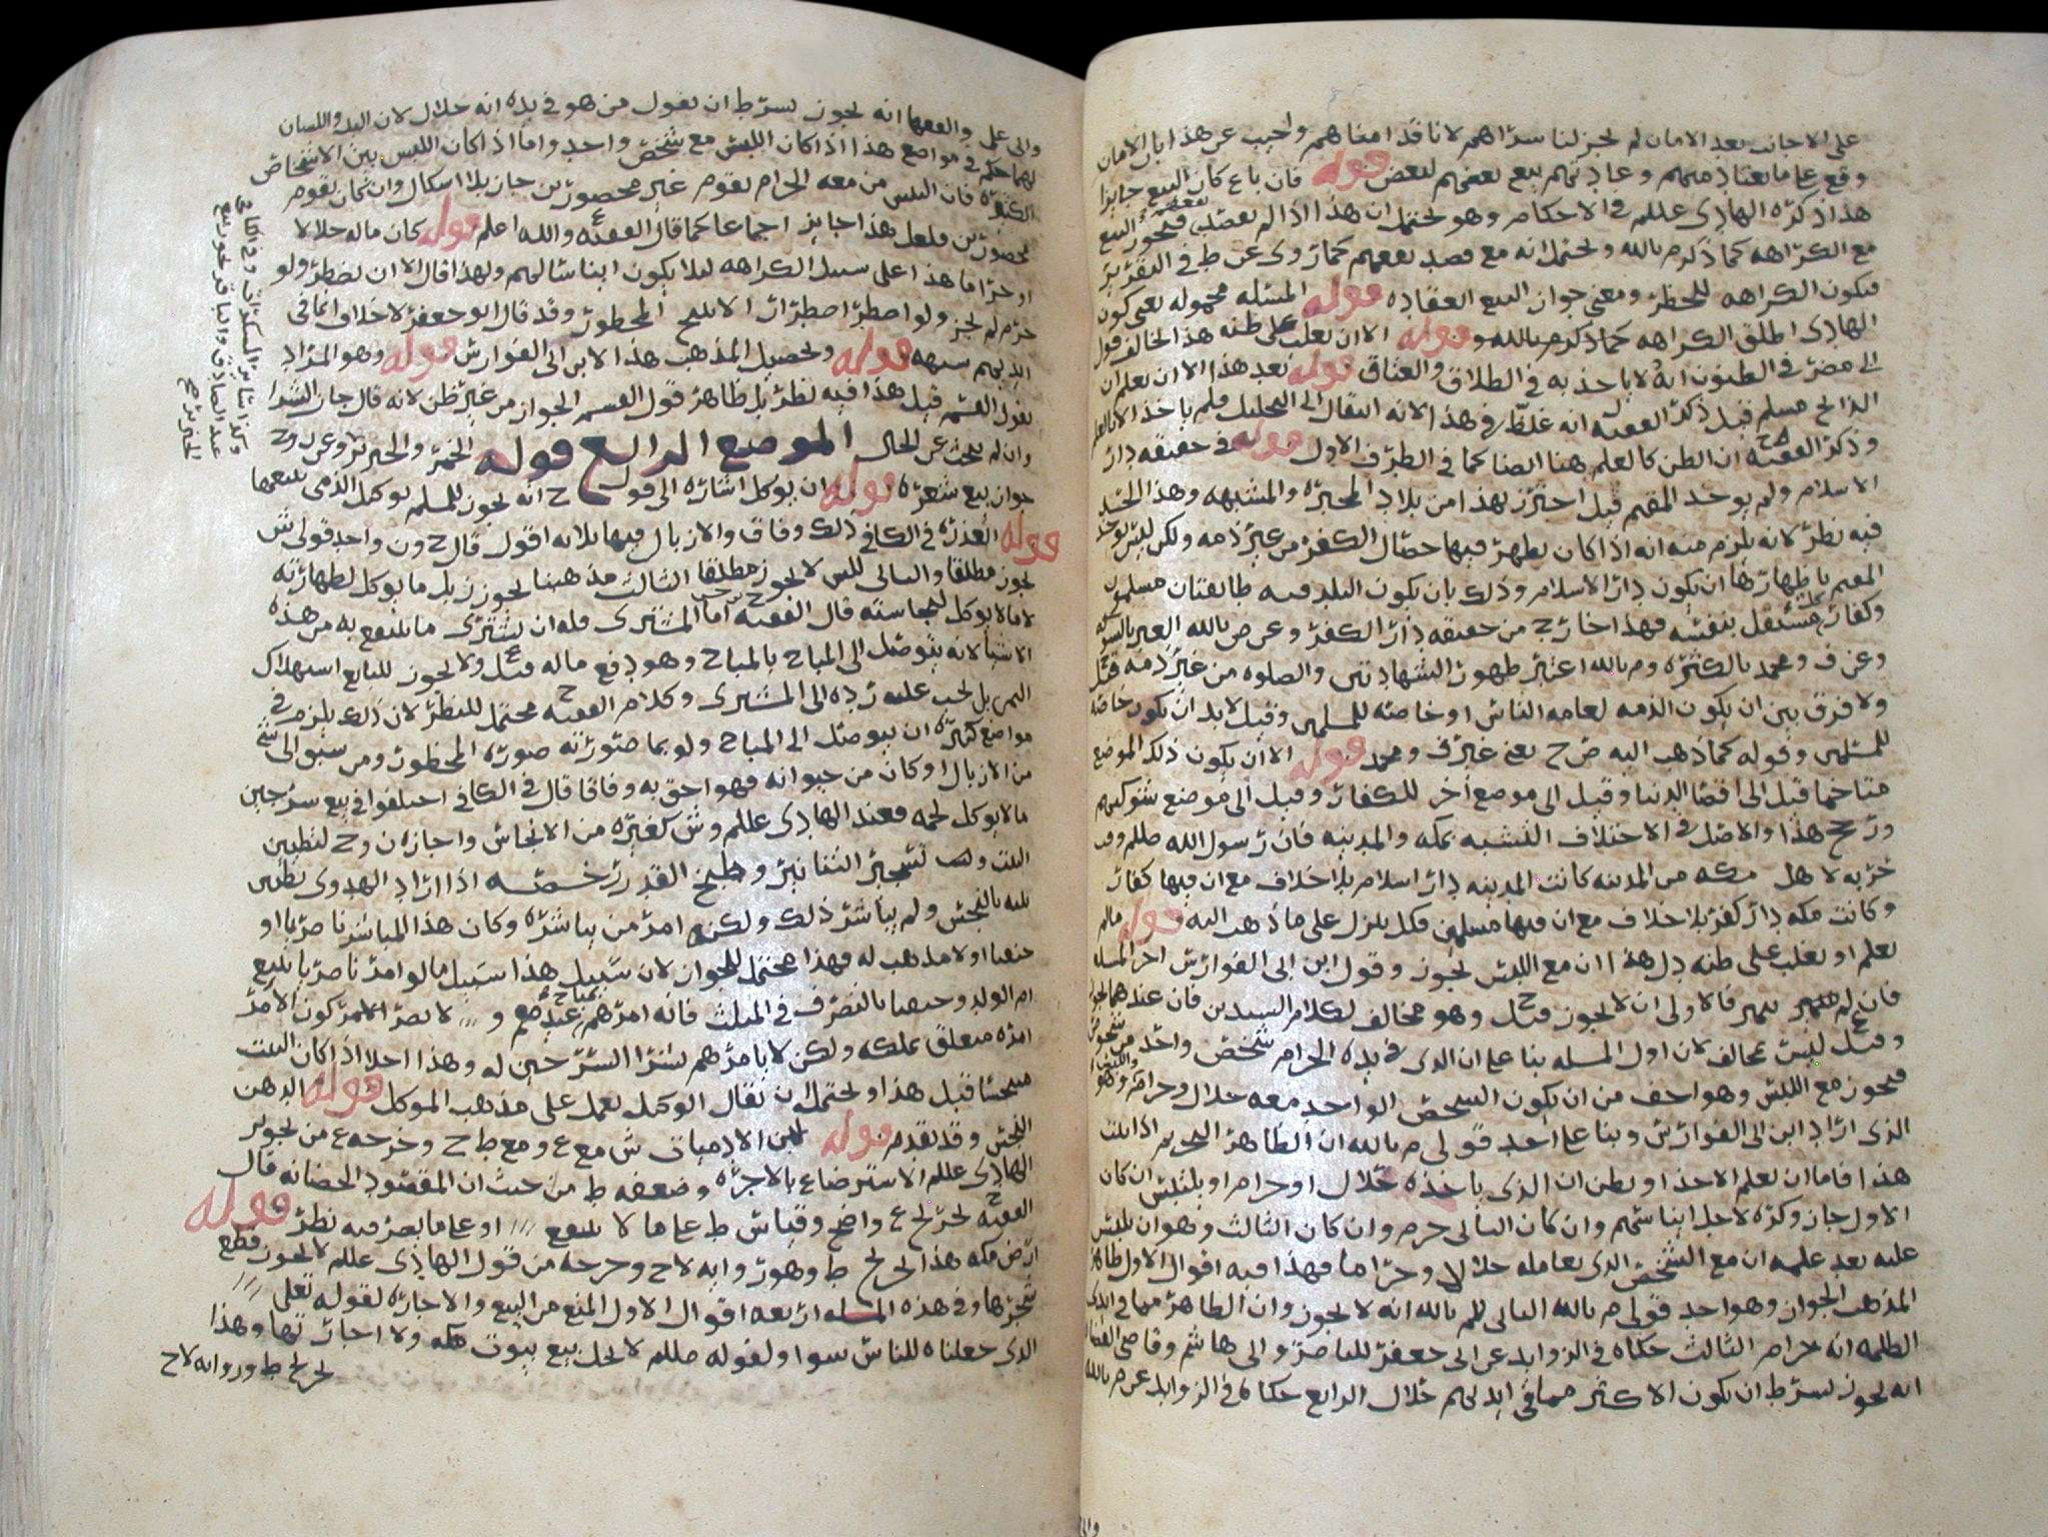 على الاجانب بعد الامان لم يجز لنا شراهم لانا قد امناهم واجيب عن هذا بان الامان
وقع على ما يعتاد منهم وعادتهم بيع بعضهم لبعض قوله فان باع كان البيع جايزا
هذا ذكره الهادى عللم في الاحكام وهو يحتمل ان هذا اذا لم بقصد فيجوز البيع
مع الكراهه كما ذكره م بالله ويحتمل انه مع قصد بعضهم كما روى عن ط في التقرير
فيكون الكراهه للحظر ومعنى جواز البيع انعقاده قوله المسئله محموله يعني كون
الهادى اطلق الكراهه كما ذكره م بالله و قوله الا ان يغلب على ظنه هذا الخالف قول
الى مضر في الظنون انه لا ياخذ به في الطلاق والعتاق قوله بعد هذا الا ان يعلم ان
الذابح مسلم قيل ذكر الفقيه ل انه غلط في هذا لانه انتقال الى التحليل فلم ياخذ الا بالعلم
وذكر الفقيه ح ان الظن كالعلم هنا ايضا كما في الطرف الاول قوله في حقيقه دار
الاسلام ولم يوجد المقيم قيل احترز بهذا من بلاد المجبره والمشبهه وهذا الحد
فيه نظر لانه يلزم منه انه اذا كان يظهر فيها خصال الكفر من غير ذمه ولكن ليس يوخذ
المقيم باظهارها ان يكون دار الاسلام وذلك بان يكون البلد فيه طايفتان مسلمون
وكفار مستقل بنفسه فهذا خارج من حقيقه دار الكفر وعن ص بالله العبر بالشوكه
وعن ف ومحمد بالكثره و م بالله اعتبر ظهور الشهادتين والصلوه من غير ذمه قيل
ولا فرق بين ان يكون الذمه لعامه الناس او خاصه للمسلمين وقيل لا بد ان يكون خاصه
للمسلمين وقوله كما ذهب اليه ض ح يعني غير ف ومحمد قوله الا ان يكون ذلك الموضع
متاخما قيل الى اقصا الدنيا وقيل الى موضع اخر للكفار وقيل الى موضع شوكتهم
ورجح هذا والاصل في الاختلاف التشبه بمكه والمدينه فان رسول الله صللم وقت
حربه لاهل مكه من المدينه كانت المدينه دار اسلام بلا خلاف مع ان فيها كفار
وكانت مكه دار كفر بلا خلاف مع ان فيها مسلمين فكل ينزل على ما ذهب اليه قوله مالم
يعلم او يغلب على ظنه دل هذا ان مع اللبس يجوز وقول ابن ابى الفوارس اخر المسله
فان لم يتميز فالاولى ان لا يجوز قيل ح وهو مخالف لكلام السيدين فان عندهما يجوز
وقيل ع ليس بمخالف لان اول المسله بنا على ان الذى في يده الحرام شخص واحد من
فيجوز مع اللبس وهو اخف من ان يكون الشخص الواحد معه حلال وحرام وهو
الذى اراد ابن ابى الفوارس وبنا على احد قولى م بالله ان الظاهر التحريم اذا ثبت
هذا فاما ان يعلم الاخذ او يظن ان الذى ياخذه حلال او حرام او يلتبس ان كان
الاول جاز وكره لاجل ايناسهم وان كان الثانى حرم وان كان الثالث وهو ان يلتبس
عليه بعد علمه ان مع الشخص الذى يعامله حلالا وحراما فهذا فيه اقوال الاول ظاهر
المذهب الجواز وهو احد قولى م بالله الثانى للم بالله انه لا يجوز وان الظاهر مما في ايدى
الظلمه انه حرام الثالث حكاه في الزوايد عن ابى جعفر للناصر وابى هاشم وقاضى القضاه
انه يجوز بشرط ان يكون الاكثر مما في ايديهم حلال الرابع حكاه في الزوايد عن م بالله
وابى على والفقها انه يجوز بشرط ان يقول من هو في يده انه حلال لان اليد واللسان
لهما حكم في مواضع هذا اذا كان اللبس مع شخص واحد واما اذا كان اللبس بين الاشخاص
الكثيره فان التبس من معه الحرام بقوم غير محصورين جاز بلا اشكال وان كان بقوم
محصورين فلعل هذا جايز اجماعا كما قال الفقيه ع والله اعلم قوله كان ماله حلالا
او حراما هذا على سبيل الكراهه ليلا يكون ايناسا لهم ولهذا قال الا ان يضطر ولو
حرم لم يجز ولو اضطر اضطرارا لا يبيح المحظور وقد قال ابو جعفر لا خلاف ان ما في
ايديهم شبهه قوله وتحصيل المذهب هذا لابن ابى الفوارس قوله وهو المراد
بقول القسم قيل هذا فيه نظر بل ظاهر قول القسم الجواز من غير ظن لانه قال جاز الشرا
وان لم يبحث عن الحال الموضع الرابع قوله الخمر والخنزير وعن ن وح
جواز بيع شعره قوله ان يوكل اشاره الى قول ح انه يجوز للمسلم توكيل الذمى ببيعها
قوله العذره في الكافى ذلك وفاق والازبال فيها ثلاثه اقوال قال ح ون واحد قولى ش
يجوز مطلقا والثانى للش لا يجوز مطلقا الثالث مذهبنا يجوز زبل ما يوكل لطهارته
لا ما لا يوكل لنجاسته قال الفقيه ح اما المشترى فله ان يشترى ما ينتفع به من هذه
الاشيا لانه يتوصل الى المباح بالمباح وهو دفع ماله قيل ع ولا يجوز للبايع استهلاك
الثمن بل يجب عليه رده الى المشترى وكلام الفقيه ح محتمل للنظر لان ذلك يلزم في
مواضع كثيره ان يتوصل الى المباح ولو بما صورته صوره المحظور ومن سبق الى شى
من الازبال او كان من حيوانه فهو احق به وفاقا قال في الكافى اختلفوا في بيع سرجين
مالا يوكل لحمه فعند الهادى عللم وش كغيره من الانجاس واجازه ن وح لتطيين
البيت وتسجير التنانير وطبخ القدر رخصه اذا اراد الهدوى تطيين
بيته بالنجس ولم يباشر ذلك ولكن امر من يباشره وكان هذا المباشر ناصريا او
حنفيا او لا مذهب له فهذا محتمل للجواز لان سبيل هذا سبيل مالو امر ناصريا ببيع
ام الولد وحنفيا بالتصرف في المثلث فانه امرهم بمباح عندهم و لا يضر الامر كون الامر
امره متعلق بملكه ولكن لا يامرهم بشرا السرجين له وهذا اجلا اذا كان البيت
مسجدا قيل هذا ويحتمل ان يقال الوكيل يعمل على مذهب الموكل قوله الدهن
النجس وقد تقدم قوله لبن الادميات ش مع ع ومع ط ح وخرجه ع من تجويز
الهادى عللم الاسترضاع بالاجره وضعفه ط من حيث ان المقصود الحضانه قال
الفقيه ح تخريج ع واضح وقياس ط على ما لا ينتفع او على ما يضر فيه نظر قوله
ارض مكه هذا تخريج ط وهو روايه لا ح وخرجه من قول الهادى عللم لا يجوز قطع
شجرها وفي هذه المسله اربعه اقوال الاول المنع من البيع والاجاره لقوله تعلى
الذى جعلناه للناس سوا ولقوله صللم لا يحل بيع بيوت مكه ولا اجارتها وهذا
تخريج ط وروايه لا ح